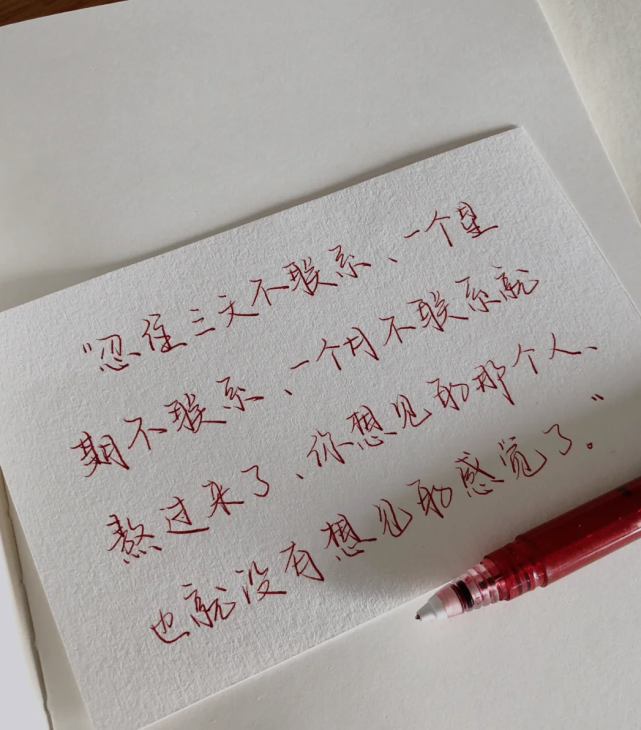 “忍住三天不联系、一个星
期不联系、一个月不联系就
熬过来了、你想见的那个人、
也就没有想见的感觉了。”